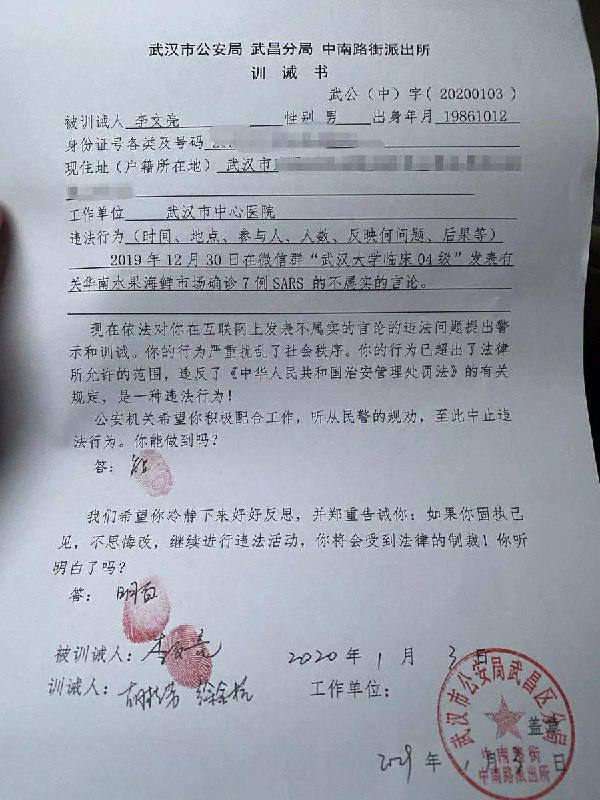 武汉市公安局 武昌分局 中南路街派出所
训 诫 书
武公（中）字（20200103）
被训诫人 李文亮 性别 男 出身年月 19861012
身份证号各类及号码
现住址（户籍所在地） 武汉市
工作单位 武汉市中心医院
违法行为（时间、地点、参与人、人数、反映何问题、后果等）
2019年12月30日在微信群“武汉大学临床04级”发表有
关华南水果海鲜市场确诊7例SARS 的不属实的言论。
现在依法对你在互联网上发表不属实的言论的违法问题提出警
示和训诫。你的行为严重扰乱了社会秩序。你的行为已超出了法律
所允许的范围，违反了《中华人民共和国治安管理处罚法》的有关
规定，是一种违法行为！
公安机关希望你积极配合工作，听从民警的规劝，至此中止违
法行为。你能做到吗？
答： 能
我们希望你冷静下来好好反思，并郑重告诫你：如果你固执己
见，不思悔改，继续进行违法活动，你将会受到法律的制裁！你听
明白了吗？
答： 明白
被训诫人：李文亮 2020 年 1 月 3 日
训诫人： 工作单位：
武汉市公安局武昌区分局
盖章
中南路街
中南路派出所
年 1 月 3 日